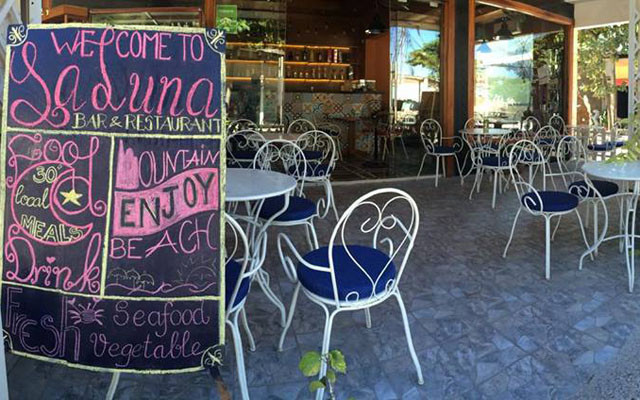 WELCOME TO
La Luna
BAR & RESTAURANT
Food
30
local
MEALS
Drink
MOUNTAIN
ENJOY
BEACH
FRESH Seafood
Vegetable